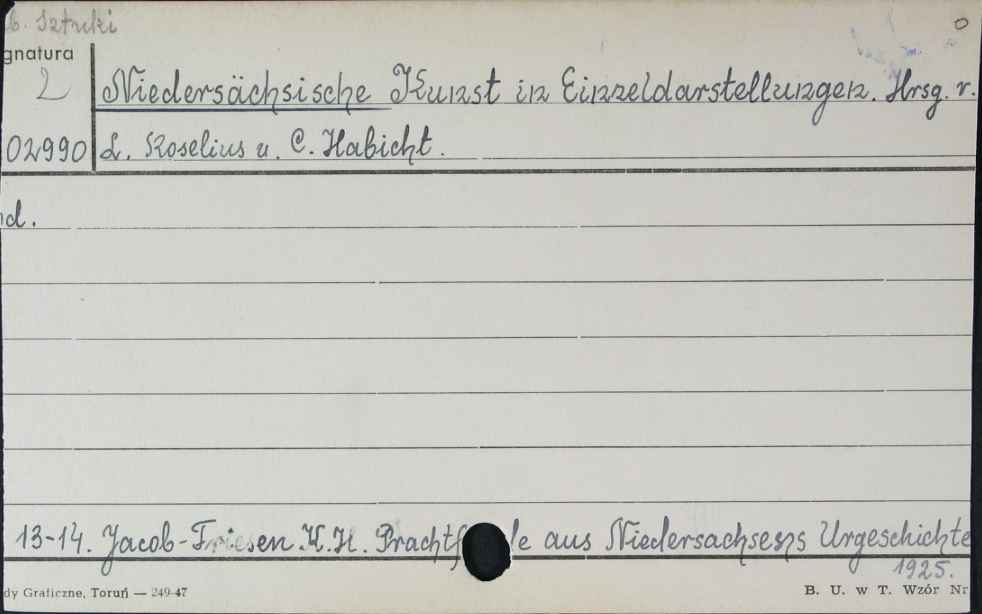 Sztuki
gnatura
2
Niedersächsische Kunst in Einzeldarstellungen. Hrsg. v.
02990 L. Roselius u. C. Habicht.
nd.
13-14. Jacob-Friesen K.H. aus Niedersachsens Urgeschichte
1925.
dy Graficzne, Toruń — 249-47
B. U. w T. Wzór Nr